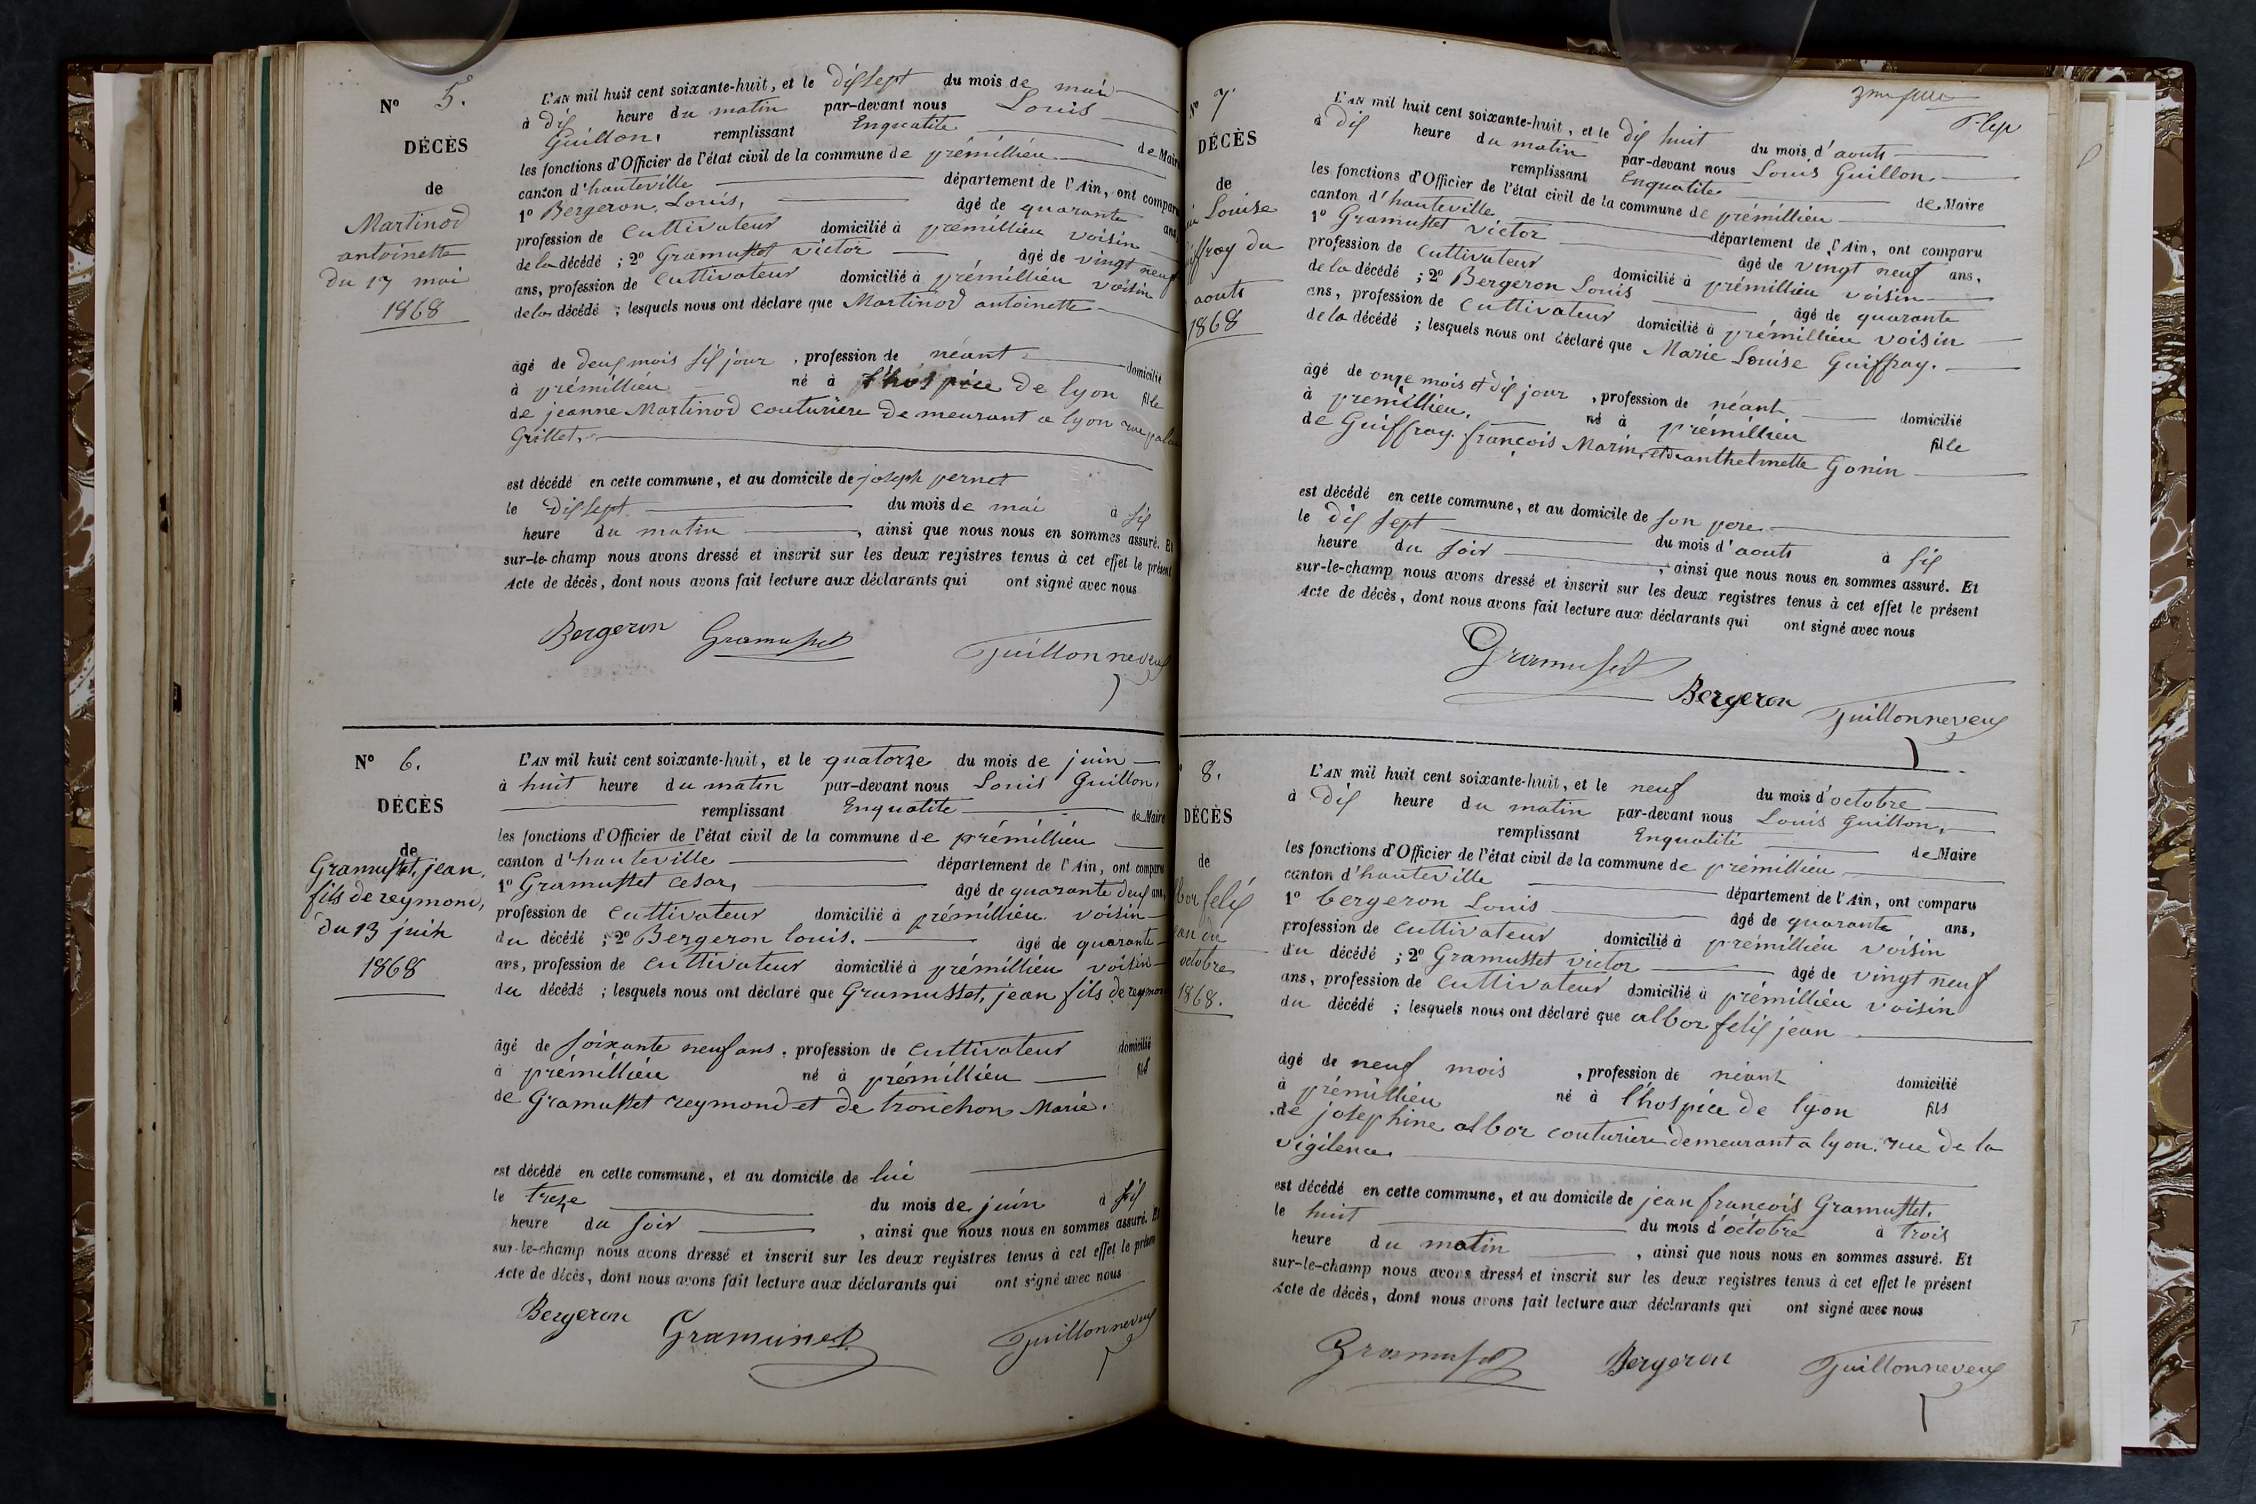 N° 5.
DÉCÈS
de
Martinod
antoinette
du 17 mai
1868
L'AN mil huit cent soixante-huit, et le dissept du mois de mai
à dis heure du matin par-devant nous Louis
Guillon, remplissant Enqualité de Maire
les fonctions d'Officier de l'état civil de la commune de prémillieu
canton d'hauteville département de l'Ain, ont comparu
1° Bergeron, Louis, âgé de quarante ans,
profession de Cultivateur domicilié à prémillieu voisin
de la décédé ; 2° Gramusset victor âgé de vingt neuf
ans, profession de Cultivateur domicilié à prémillieu voisin
de la décédé ; lesquels nous ont déclaré que Martinod antoinette
âgé de deus mois sis jour, profession de néant domicilié
à prémillieu né à l'hospice de lyon fille
de jeanne Martinod couturière demeurant a lyon rue
Grillet,
est décédé en cette commune, et au domicile de joseph pernet
le dissept du mois de mai à sis
heure du matin, ainsi que nous nous en sommes assuré. Et
sur-le-champ nous avons dressé et inscrit sur les deux registres tenus à cet effet le présent
Acte de décès, dont nous avons fait lecture aux déclarants qui ont signé avec nous
Bergeron Gramusset Guillon neveu
N° 6.
DÉCÈS
de
Gramusset, jean,
fils de reymond,
du 13 juin
1868
L'AN mil huit cent soixante-huit, et le quatorze du mois de juin
à huit heure du matin par-devant nous Louis Guillon,
remplissant Enqualité de Maire
les fonctions d'Officier de l'état civil de la commune de prémillieu
canton d'hauteville département de l'Ain, ont comparu
1° Gramusset Cesar, âgé de quarante deus ans,
profession de Cultivateur domicilié à prémillieu voisin
du décédé ; 2° Bergeron louis. âgé de quarante
ans, profession de Cultivateur domicilié à prémillieu voisin
du décédé ; lesquels nous ont déclaré que Gramusset, jean fils de reymond
âgé de soixante neuf ans, profession de Cultivateur domicilié
à prémillieu né à prémillieu fils
de Gramusset reymond et de tronchon Marie.
est décédé en cette commune, et au domicile de lui
le treze du mois de juin à sis
heure du soir, ainsi que nous nous en sommes assuré. Et
sur-le-champ nous avons dressé et inscrit sur les deux registres tenus à cet effet le présent
Acte de décès, dont nous avons fait lecture aux déclarants qui ont signé avec nous
Bergeron Gramusset Guillon neveu
N° 7.
DÉCÈS
de
Louise
du
aouts
1868
L'AN mil huit cent soixante-huit, et le dis huit du mois d'aouts
à dis heure du matin par-devant nous Louis Guillon
remplissant Enqualité de Maire
les fonctions d'Officier de l'état civil de la commune de prémillieu
canton d'hauteville département de l'Ain, ont comparu
1° Gramusset victor âgé de vingt neuf ans,
profession de Cultivateur domicilié à prémillieu voisin
de la décédé ; 2° Bergeron Louis âgé de quarante
ans, profession de Cultivateur domicilié à prémillieu voisin
de la décédé ; lesquels nous ont déclaré que Marie Louise Guiffray.
âgé de onze mois et dis jour, profession de néant domicilié
à premillieu, né à prémillieu fille
de Guiffray françois Marin, et de anthelmette Gonin
est décédé en cette commune, et au domicile de son pere
le dis sept du mois d'aouts à sis
heure du soir, ainsi que nous nous en sommes assuré. Et
sur-le-champ nous avons dressé et inscrit sur les deux registres tenus à cet effet le présent
Acte de décès, dont nous avons fait lecture aux déclarants qui ont signé avec nous
Gramusset
Bergeron Guillon neveu
8.
DÉCÈS
de
felis
octobre
1868.
L'AN mil huit cent soixante-huit, et le neuf du mois d'octobre
à dis heure du matin par-devant nous Louis Guillon,
remplissant Enqualité de Maire
les fonctions d'Officier de l'état civil de la commune de prémillieu
canton d'hauteville département de l'Ain, ont comparu
1° bergeron Louis âgé de quarante ans,
profession de Cultivateur domicilié à prémillieu voisin
du décédé ; 2° Gramusset victor âgé de vingt neuf
ans, profession de Cultivateur domicilié à prémillieu voisin
du décédé ; lesquels nous ont déclaré que albor felis jean
âgé de neuf mois, profession de néant domicilié
à prémillieu né à l'hospice de lyon fils
de josephine albor couturiere demeurant a lyon, rue de la
vigilence
est décédé en cette commune, et au domicile de jean françois Gramusset.
le huit du mois d'octobre à trois
heure du matin, ainsi que nous nous en sommes assuré. Et
sur-le-champ nous avons dressé et inscrit sur les deux registres tenus à cet effet le présent
Acte de décès, dont nous avons fait lecture aux déclarants qui ont signé avec nous
Gramusset Bergeron Guillon neveu